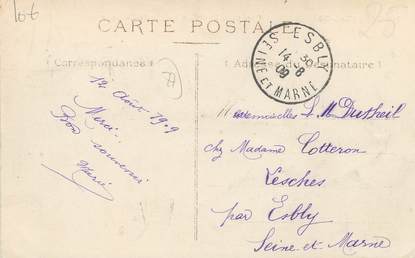 106
25
CARTE POSTALE
ESBLY
14 - 8
09
SEINE ET MARNE
Correspondance
Adresse du Destinataire
77
12 Août 1909
Merci
Bon souvenir
Marie
Mesdemoiselles L. M. Dutheil
chez Madame Cotteron
Lesches
par Esbly
Seine-et-Marne